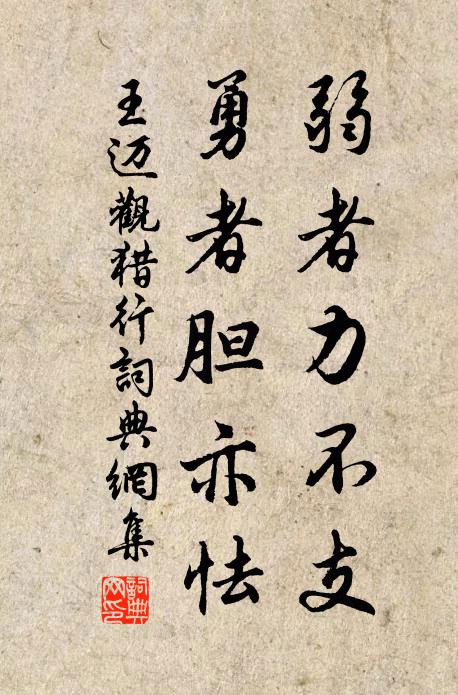 弱者力不支
勇者胆亦怯
王迈觀猎行詞典網集